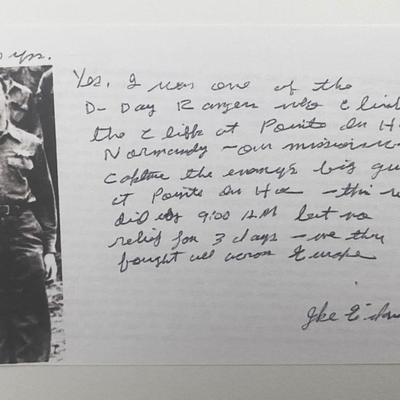 yrs.
Yes, I was one of the
D-Day Rangers who climb
the cliffs at Pointe du H
Normandy - our mission was
capture the enemys big gu
at Pointe du Hoc - this
did by 9:00 AM but no
relief for 3 days - we then
fought all across Europe